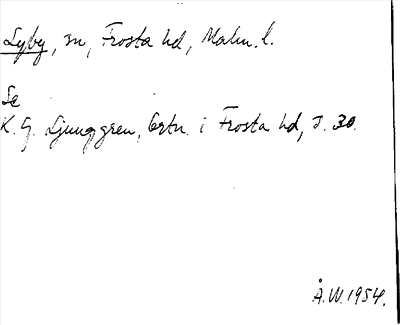 Lyby, sn, Frosta hd, Malm. l.
Se
K. G. Ljunggren, Ortn. i Frosta hd, s. 30.
Å.W. 1954.